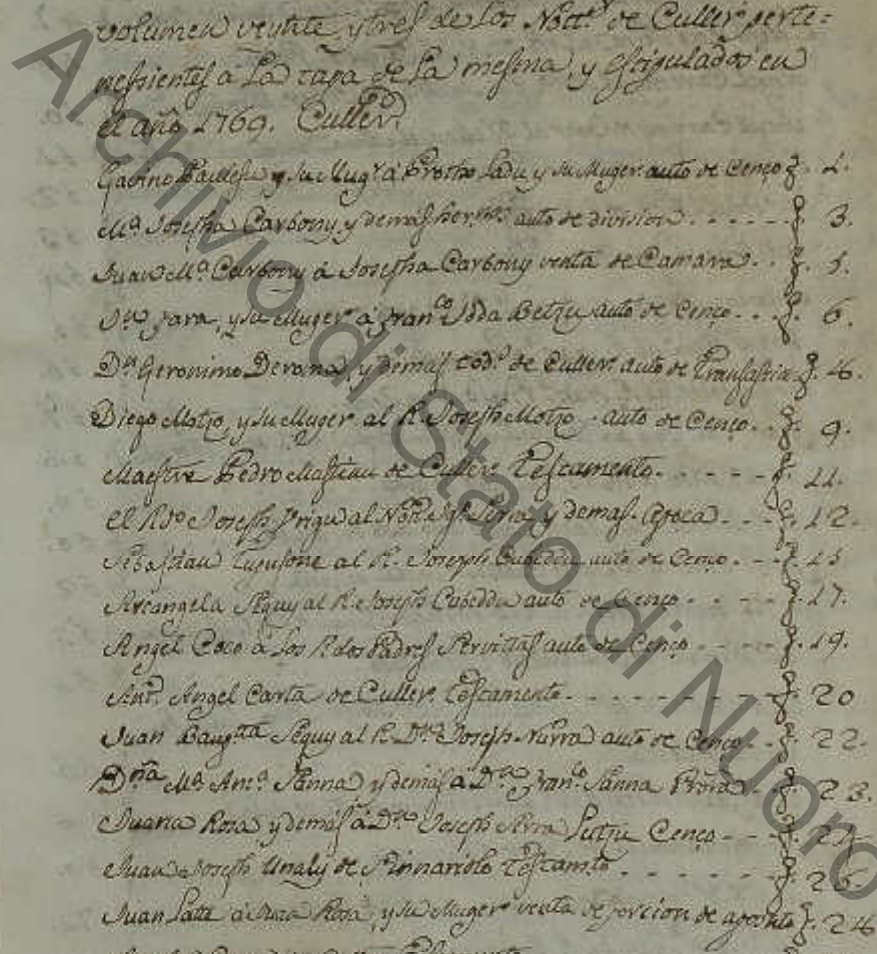 volumen veinte y tres de los Nott.s de Culler perte=
nessientes â la tapa de la mesma, y estipulados en
el año 1769. Culler.
Gavino y su Mug.r â Protho Ladu y su Muger auto de Cenço f. 1.
M.a Josepha Carbony y demas her.nos auto de division . . . . . f. 3.
Juan M.a Carbony â Josepha Carbony venta de Camara . . f. 5.
Jara, y su Muger â Fran.co Betzu auto de Cenço . . . f. 6.
D.n Geronimo Deroma, y demas de Culler auto de f.
Diego Motzo, y su Muger al R. Joseph Motzo auto de Cenço . . f. 9.
Maestre Pedro Mastinu de Culler Testamento. - - - - f. 11.
el R.do Joseph al Not. y demas . . . f. 12.
Sebastian al R. Joseph Cubeddu auto de Cenço . - - f. 15
Arcangela Seguy al R. Joseph Cubeddu auto de Cenço - - - - f. 17.
Angel Coco â los R.dos Padres Servittas auto de Cenço - - - - f. 19.
Ant.o Angel Carta de Culler Testamento. - - - - - - - - f. 20
Juan Baup.tta Seguy al R. D.n Joseph Nurra auto de Cenço. - f. 22.
D.ña M.a Ant.a Sanna y demas â D.n Fran.co Sanna . . f. 23.
Juana Rosa y demas â D.n Joseph Lutzu Cenço - - - f.
Juan Joseph Unaly de Sinnariolo Testam.to . . . . . . . f. 26.
Juan â Rosa, y su Muger venta de porcion de f.
Archivio di Stato di Nuoro